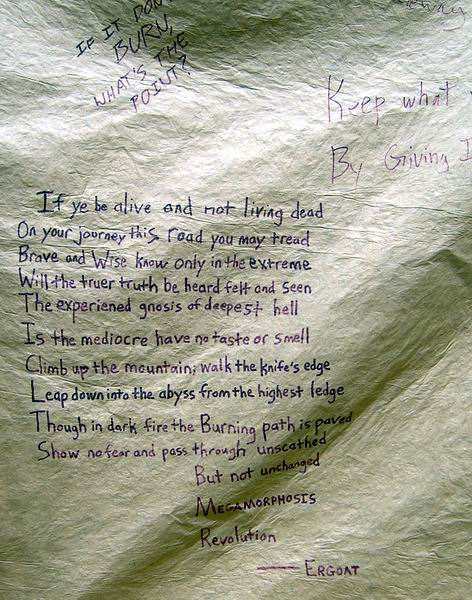 IF IT DON'
BURN,
WHAT'S THE
POINT?
away
Keep what
By Giving I
If ye be alive and not living dead
On your journey this road you may tread
Brave and Wise know only in the extreme
Will the truer truth be heard felt and seen
The experiened gnosis of deepest hell
Is the mediocre have no taste or smell
Climb up the mountain; walk the knife's edge
Leap down into the abyss from the highest ledge
Though in dark fire the Burning path is paved
Show no fear and pass through unscathed
But not unchanged
MEGAMORPHOSIS
Revolution
—— ERGOAT